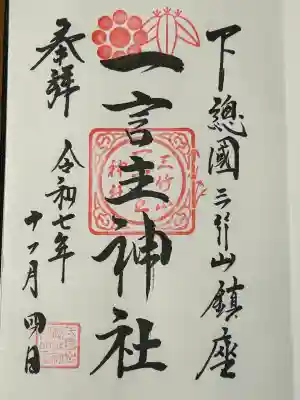 下總國三竹山鎮座
一言主神社
奉拝
令和七年
十一月四日
三竹山